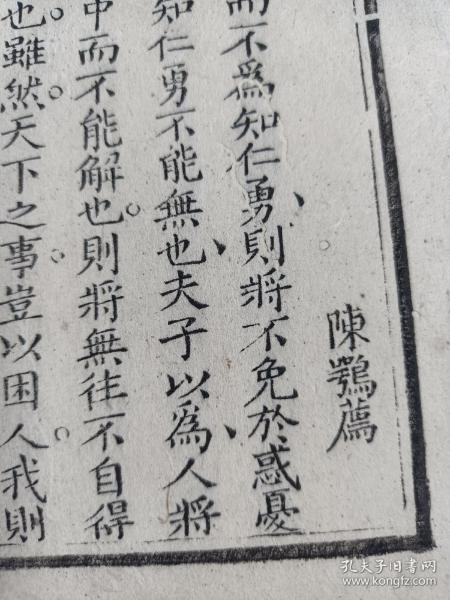 陳鶚薦
而不爲知仁勇則將不免於惑憂
知仁勇不能無也夫子以為人將
中而不能解也則將無往不自得
也雖然天下之事豈以困人我則
孔夫子旧书网
www.kongfz.com